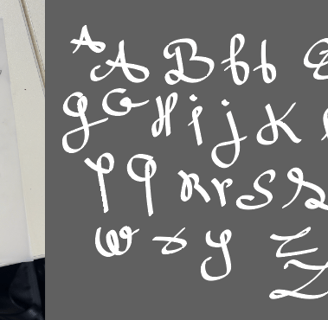 A A B b b
g G H i j K
P q R r S S
w x y z
Z